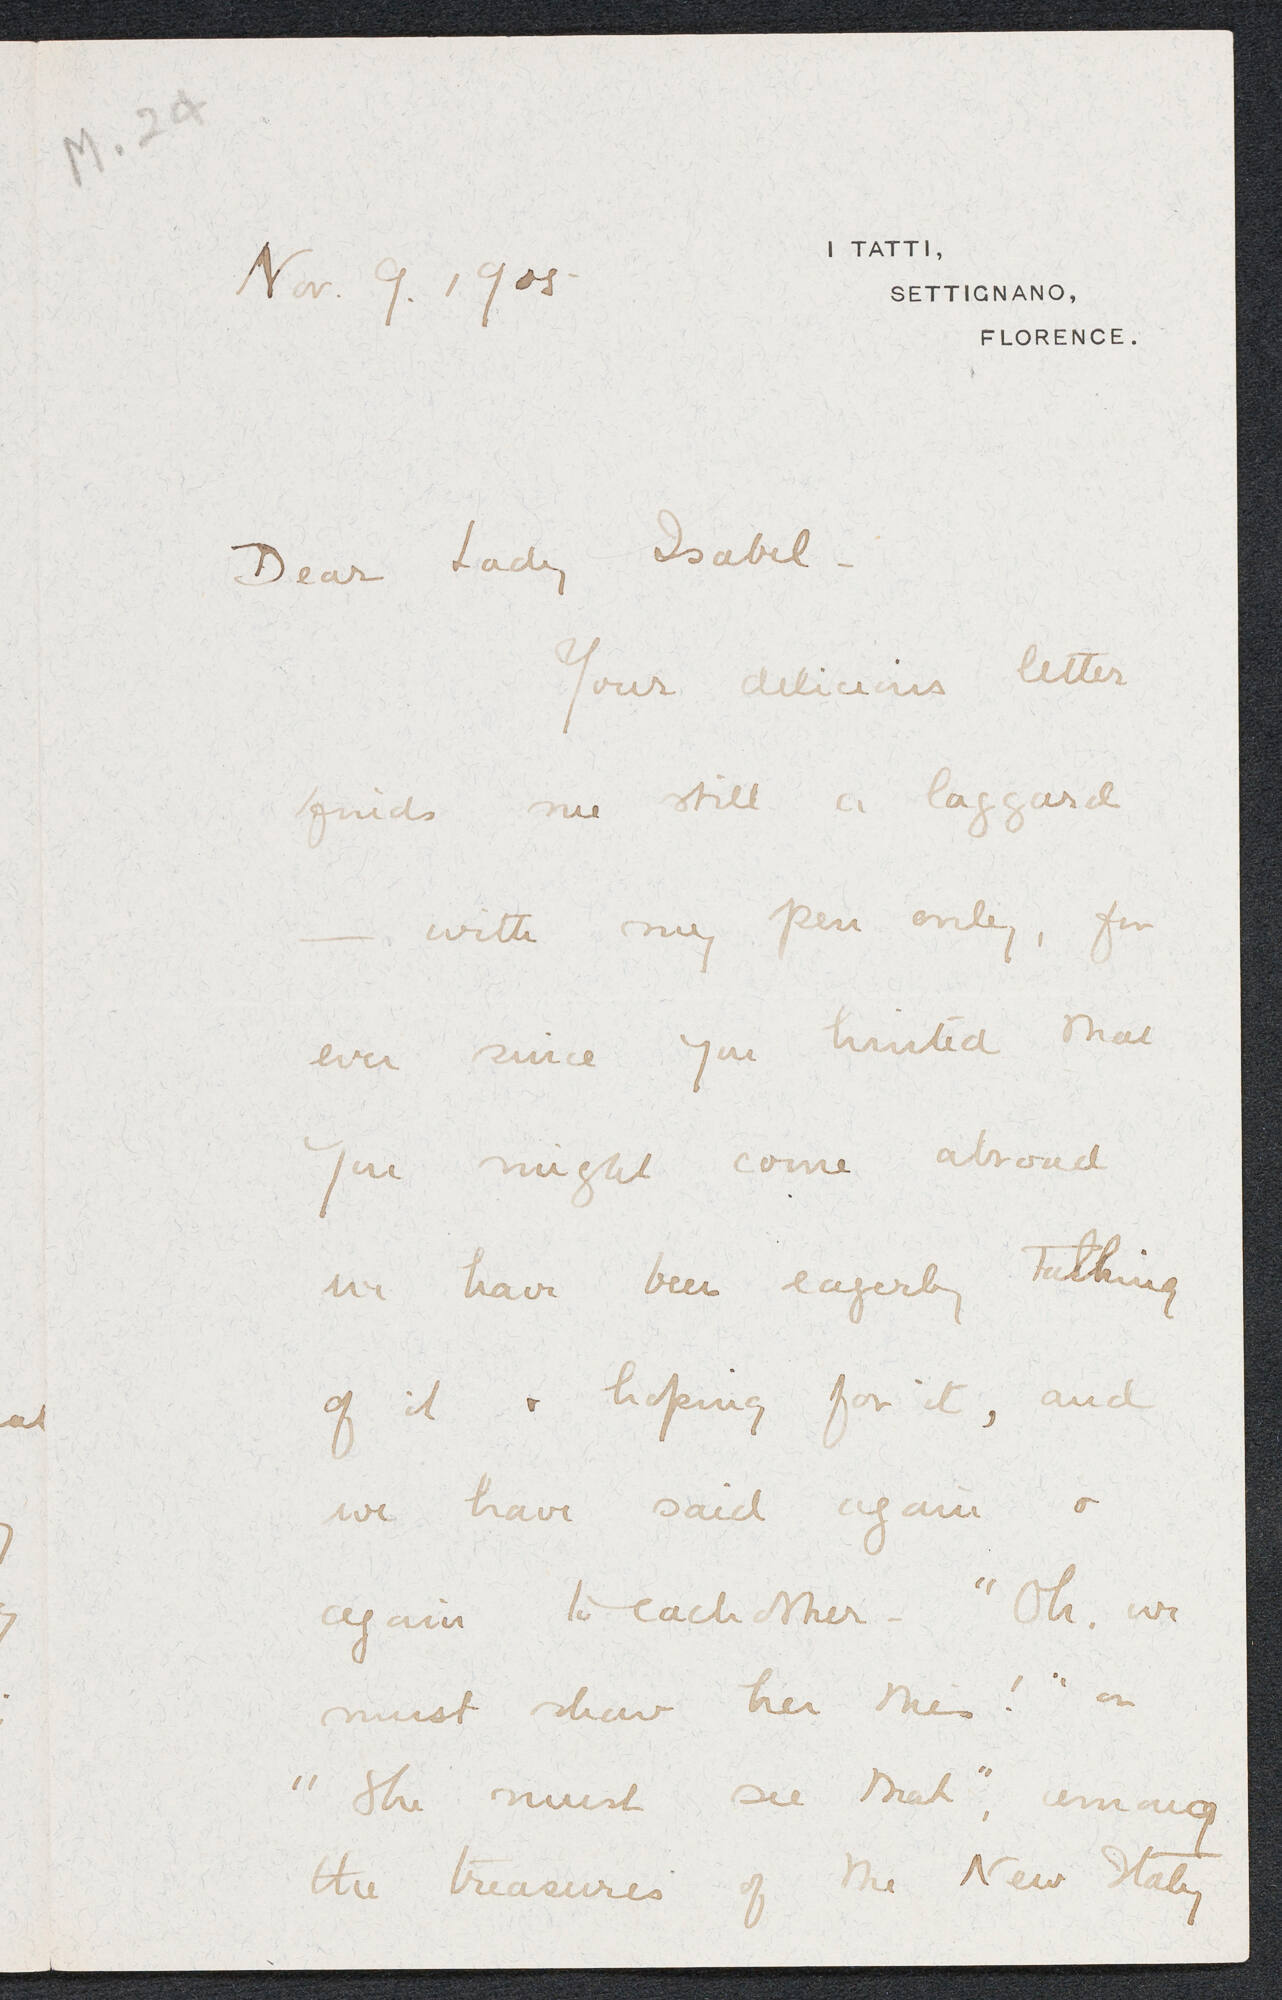 M. 24
Nov. 9. 1905
I TATTI,
SETTIGNANO,
FLORENCE.
Dear Lady Isabel -
Your delicious letter
finds me still a laggard
— with my pen only, for
ever since you hinted that
you might come abroad
we have been eagerly talking
of it & hoping for it, and
we have said again &
again to each other - "Oh, we
must show her this!" or
"She must see that", among
the treasures of the New Italy